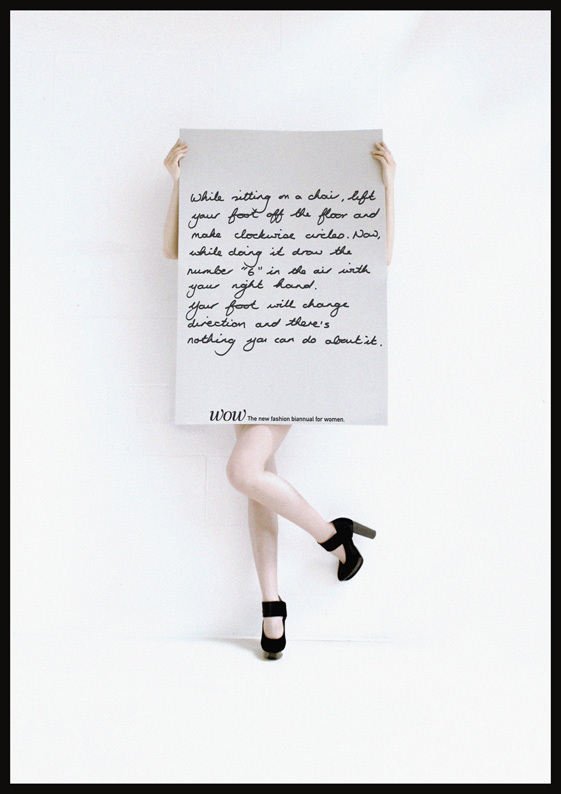 While sitting on a chair, lift
your foot off the floor and
make clockwise circles. Now,
while doing it draw the
number "6" in the air with
your right hand.
Your foot will change
direction and there's
nothing you can do about it.
WOW The new fashion biannual for women.